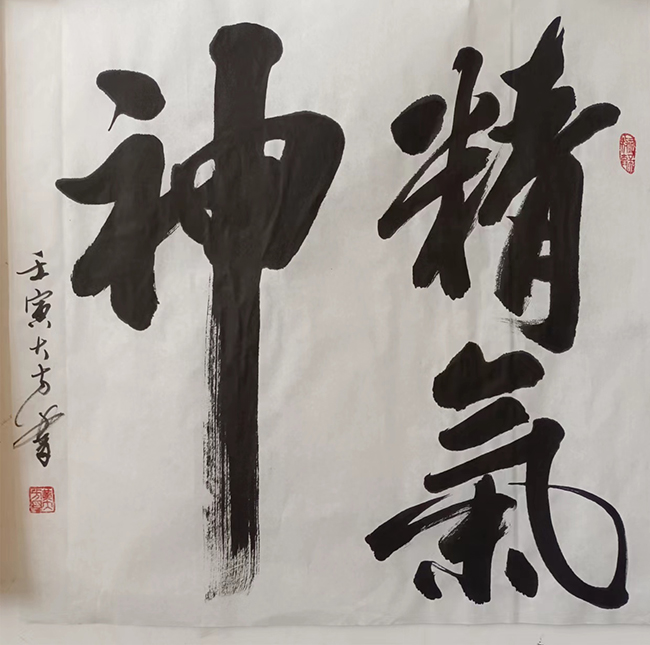 精氣
神
壬寅大方書